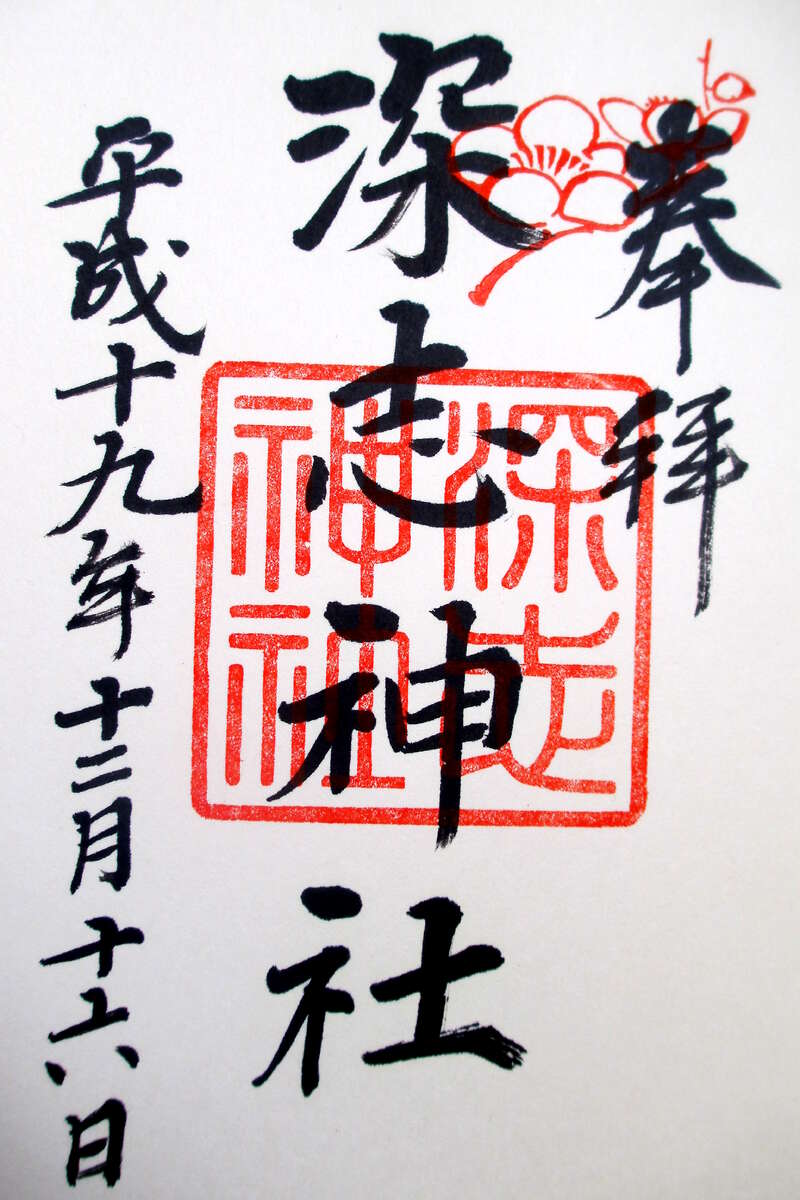 奉拝
深志神社
深志
神社
平成十九年十二月十六日